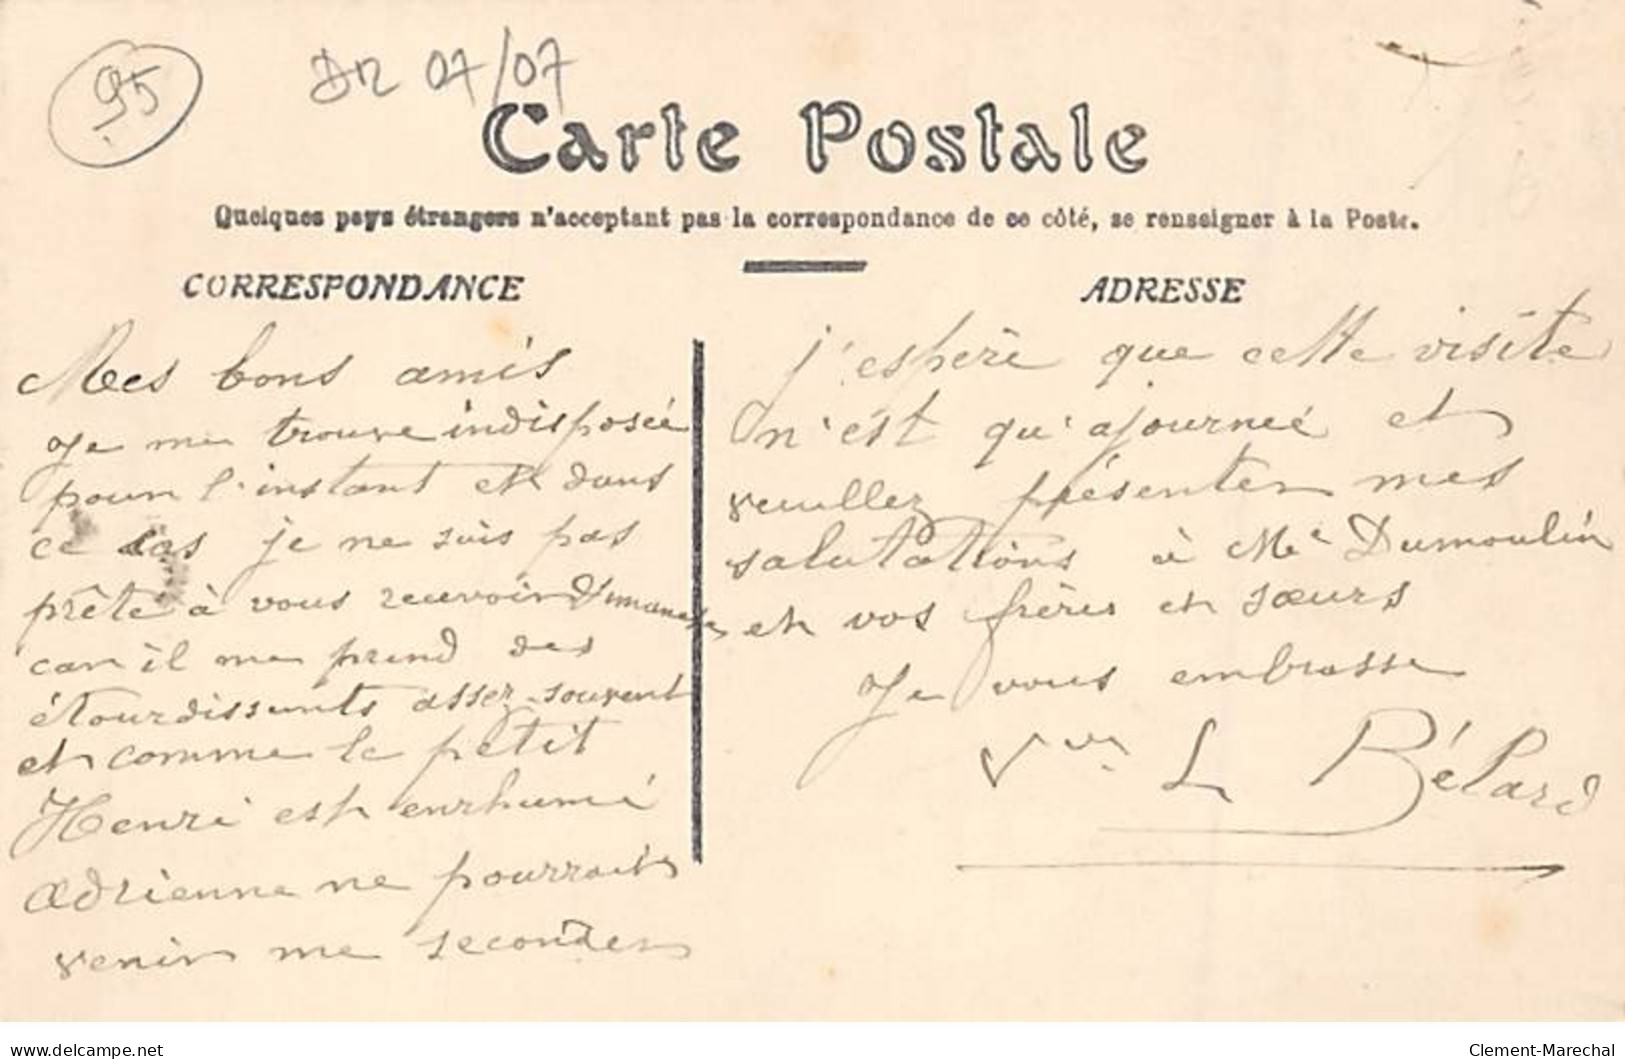 95
DR 07/07
Carte Postale
Quelques pays étrangers n'acceptant pas la correspondance de ce côté, se renseigner à la Poste.
CORRESPONDANCE
Mes bons amis
je me trouve indisposée
pour l'instant et dans
ce cas je ne suis pas
prête à vous recevoir Dimanche
car il me prend des
étourdissents assez souvent
et comme le petit
Henri est enrhumé
Adrienne ne pourrait
venir me seconder
ADRESSE
j'espère que cette visite
n'est qu'ajournée et
veuillez présenter mes
salutations à Me Dumoulin
et vos frères et sœurs
Je vous embrasse
Vve L Bélard
delcampe.net
Clement-Marechal